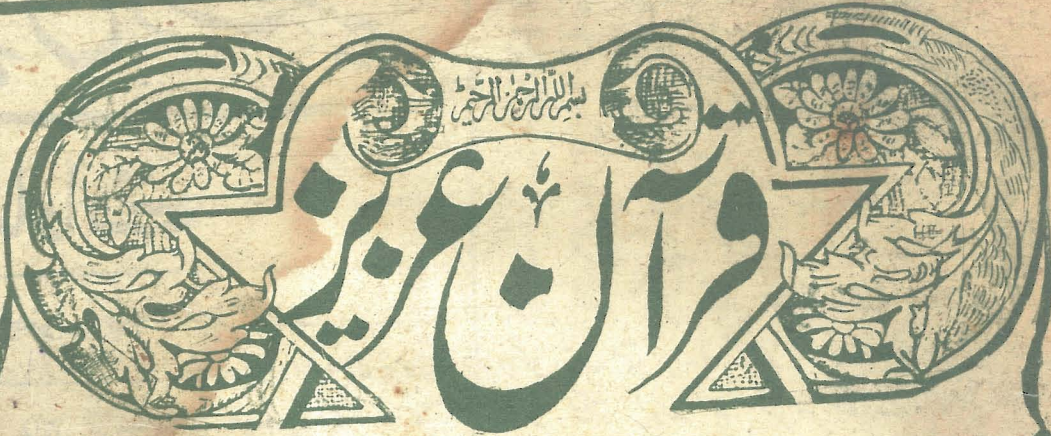 بسم الله الرحمن الرحيم
قرآن عزیز